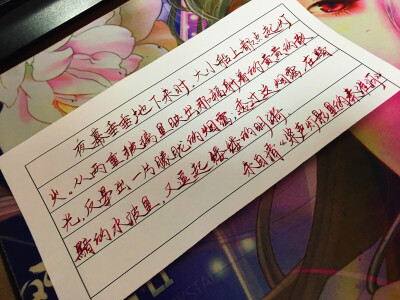 夜幕垂垂地下来时,大小船上都点起灯
火。从两重玻璃里映出那辐射着的黄黄的散
光,反晕出一片朦胧的烟霭,透过这烟霭,在黯
黯的水波里,又逗起缕缕的明漪。
朱自清《桨声灯影里的秦淮河》